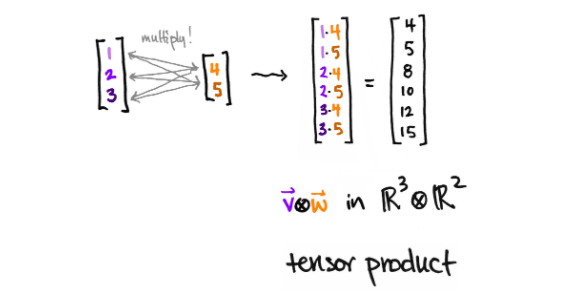 multiply!
[1 2 3] [4 5] → [1·4 1·5 2·4 2·5 3·4 3·5] = [4 5 8 10 12 15]
v⃗⊗w⃗ in ℝ³⊗ℝ²
tensor product